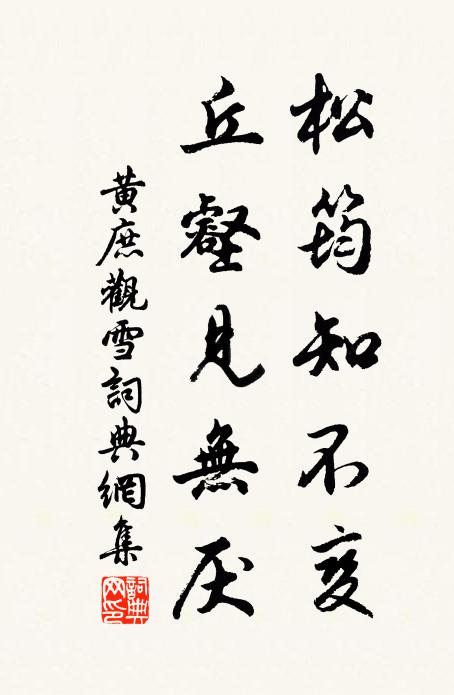 松筠知不变
丘壑見無厌
黄庶觀雪詞典網集
詞典网印